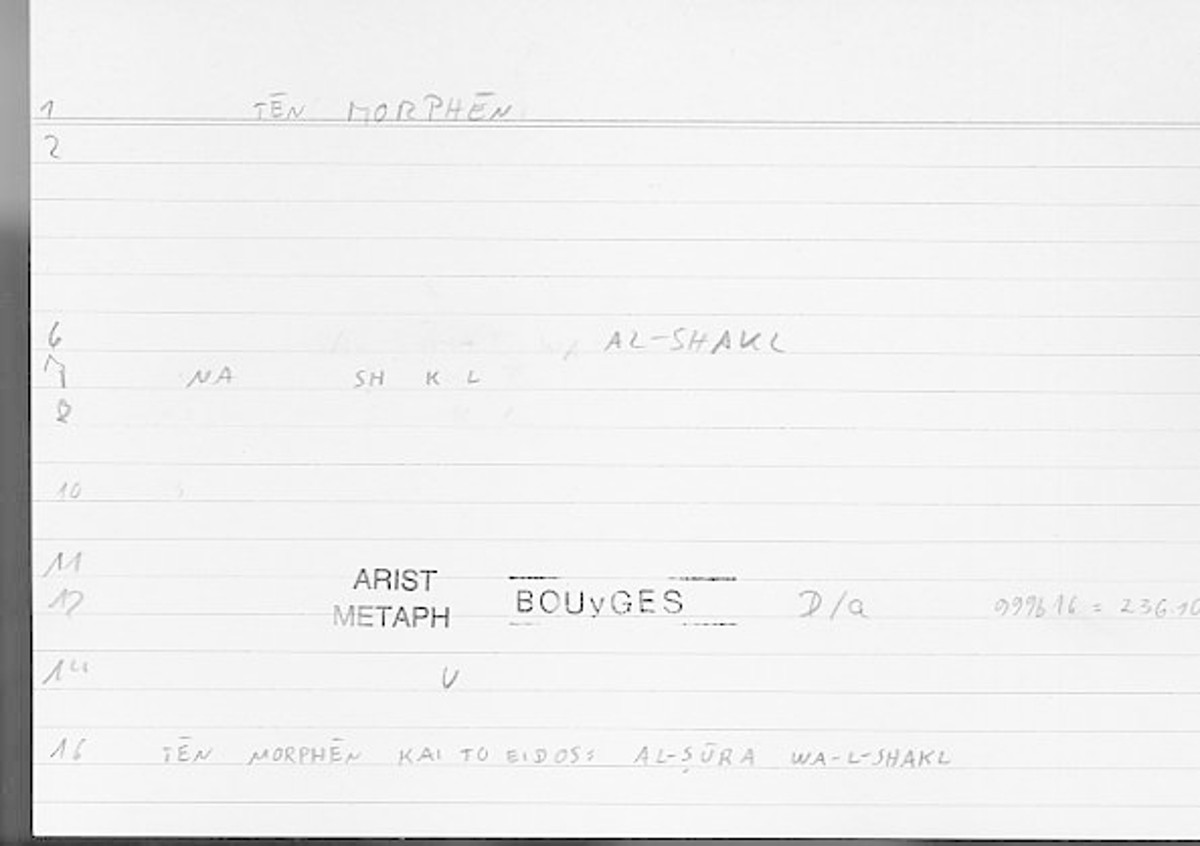 1 TĒN MORPHĒN
2
6 AL-SHAKL
7 NA SH K L
8
10
11 ARIST
12 METAPH BOUyGES D/a 999b16 = 236.10
14 v
16 TĒN MORPHĒN KAI TO EIDOS: AL-ṢŪRA WA-L-SHAKL